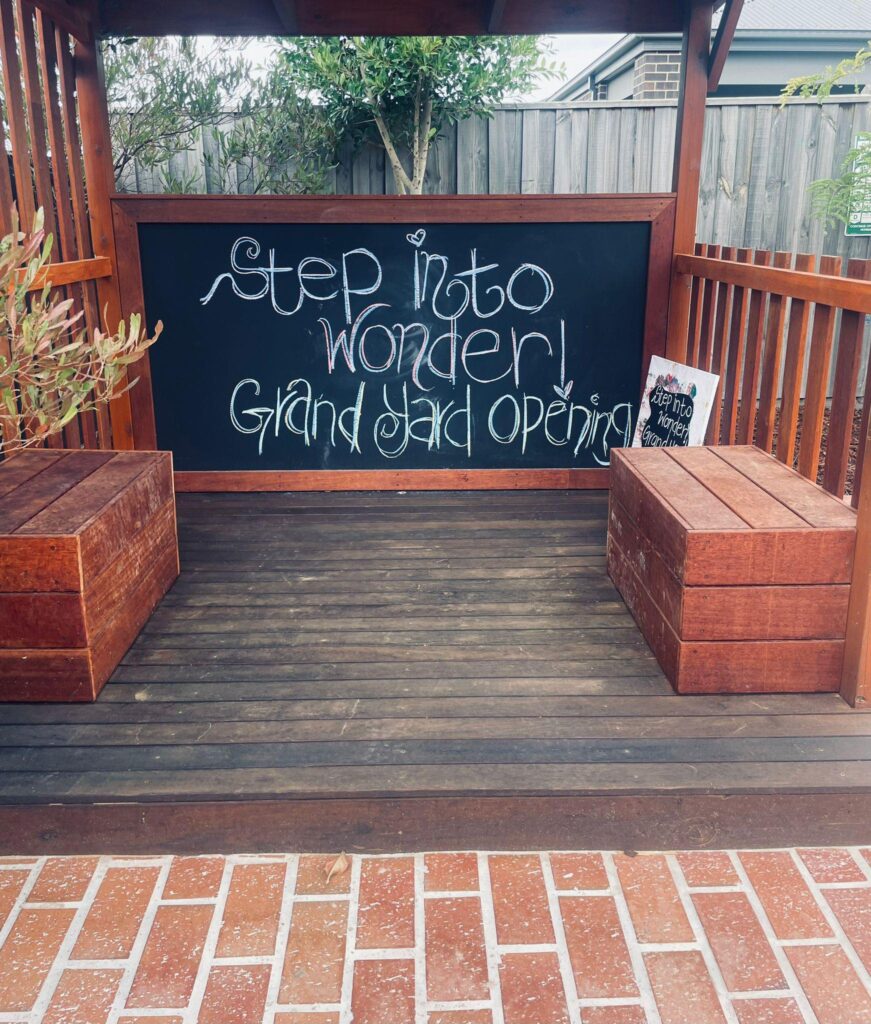 Step into
Wonder!
Grand Yard Opening
Step into
Wonder!
Grand Yard